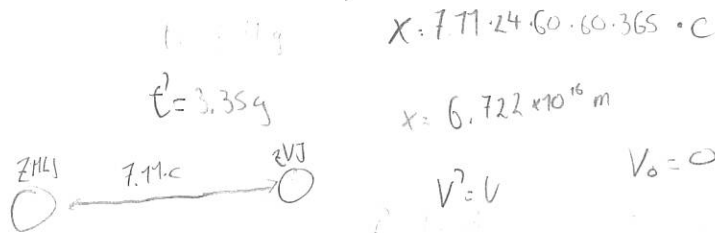 t' = 3.35g
ZMLJ 7.11·c ZVJ
X = 7.11·24·60·60·365 · C
x = 6.722 × 10¹⁶ m
V' = V
V₀ = 0